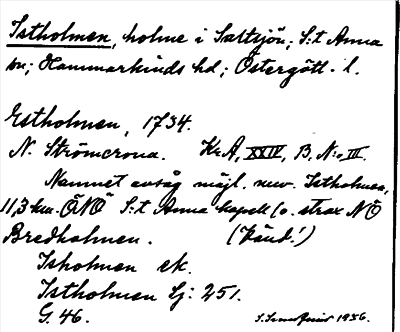 Istholmen, holme i Saltsjön; S:t Anna
sn; Hammarkinds hd; Östergötl. l.
Estholmen, 1734.
N. Strömcrona. Kr.A, XXIV, B. N:o III.
Namnet avsåg möjl. nuv. Istholmen,
11,3 km. ÖNÖ S:t Anna kapell (o. strax NÖ
Bredholmen. (Känd!)
Isholmen ek.
Istholmen Lj: 251.
G. 46. 1936.